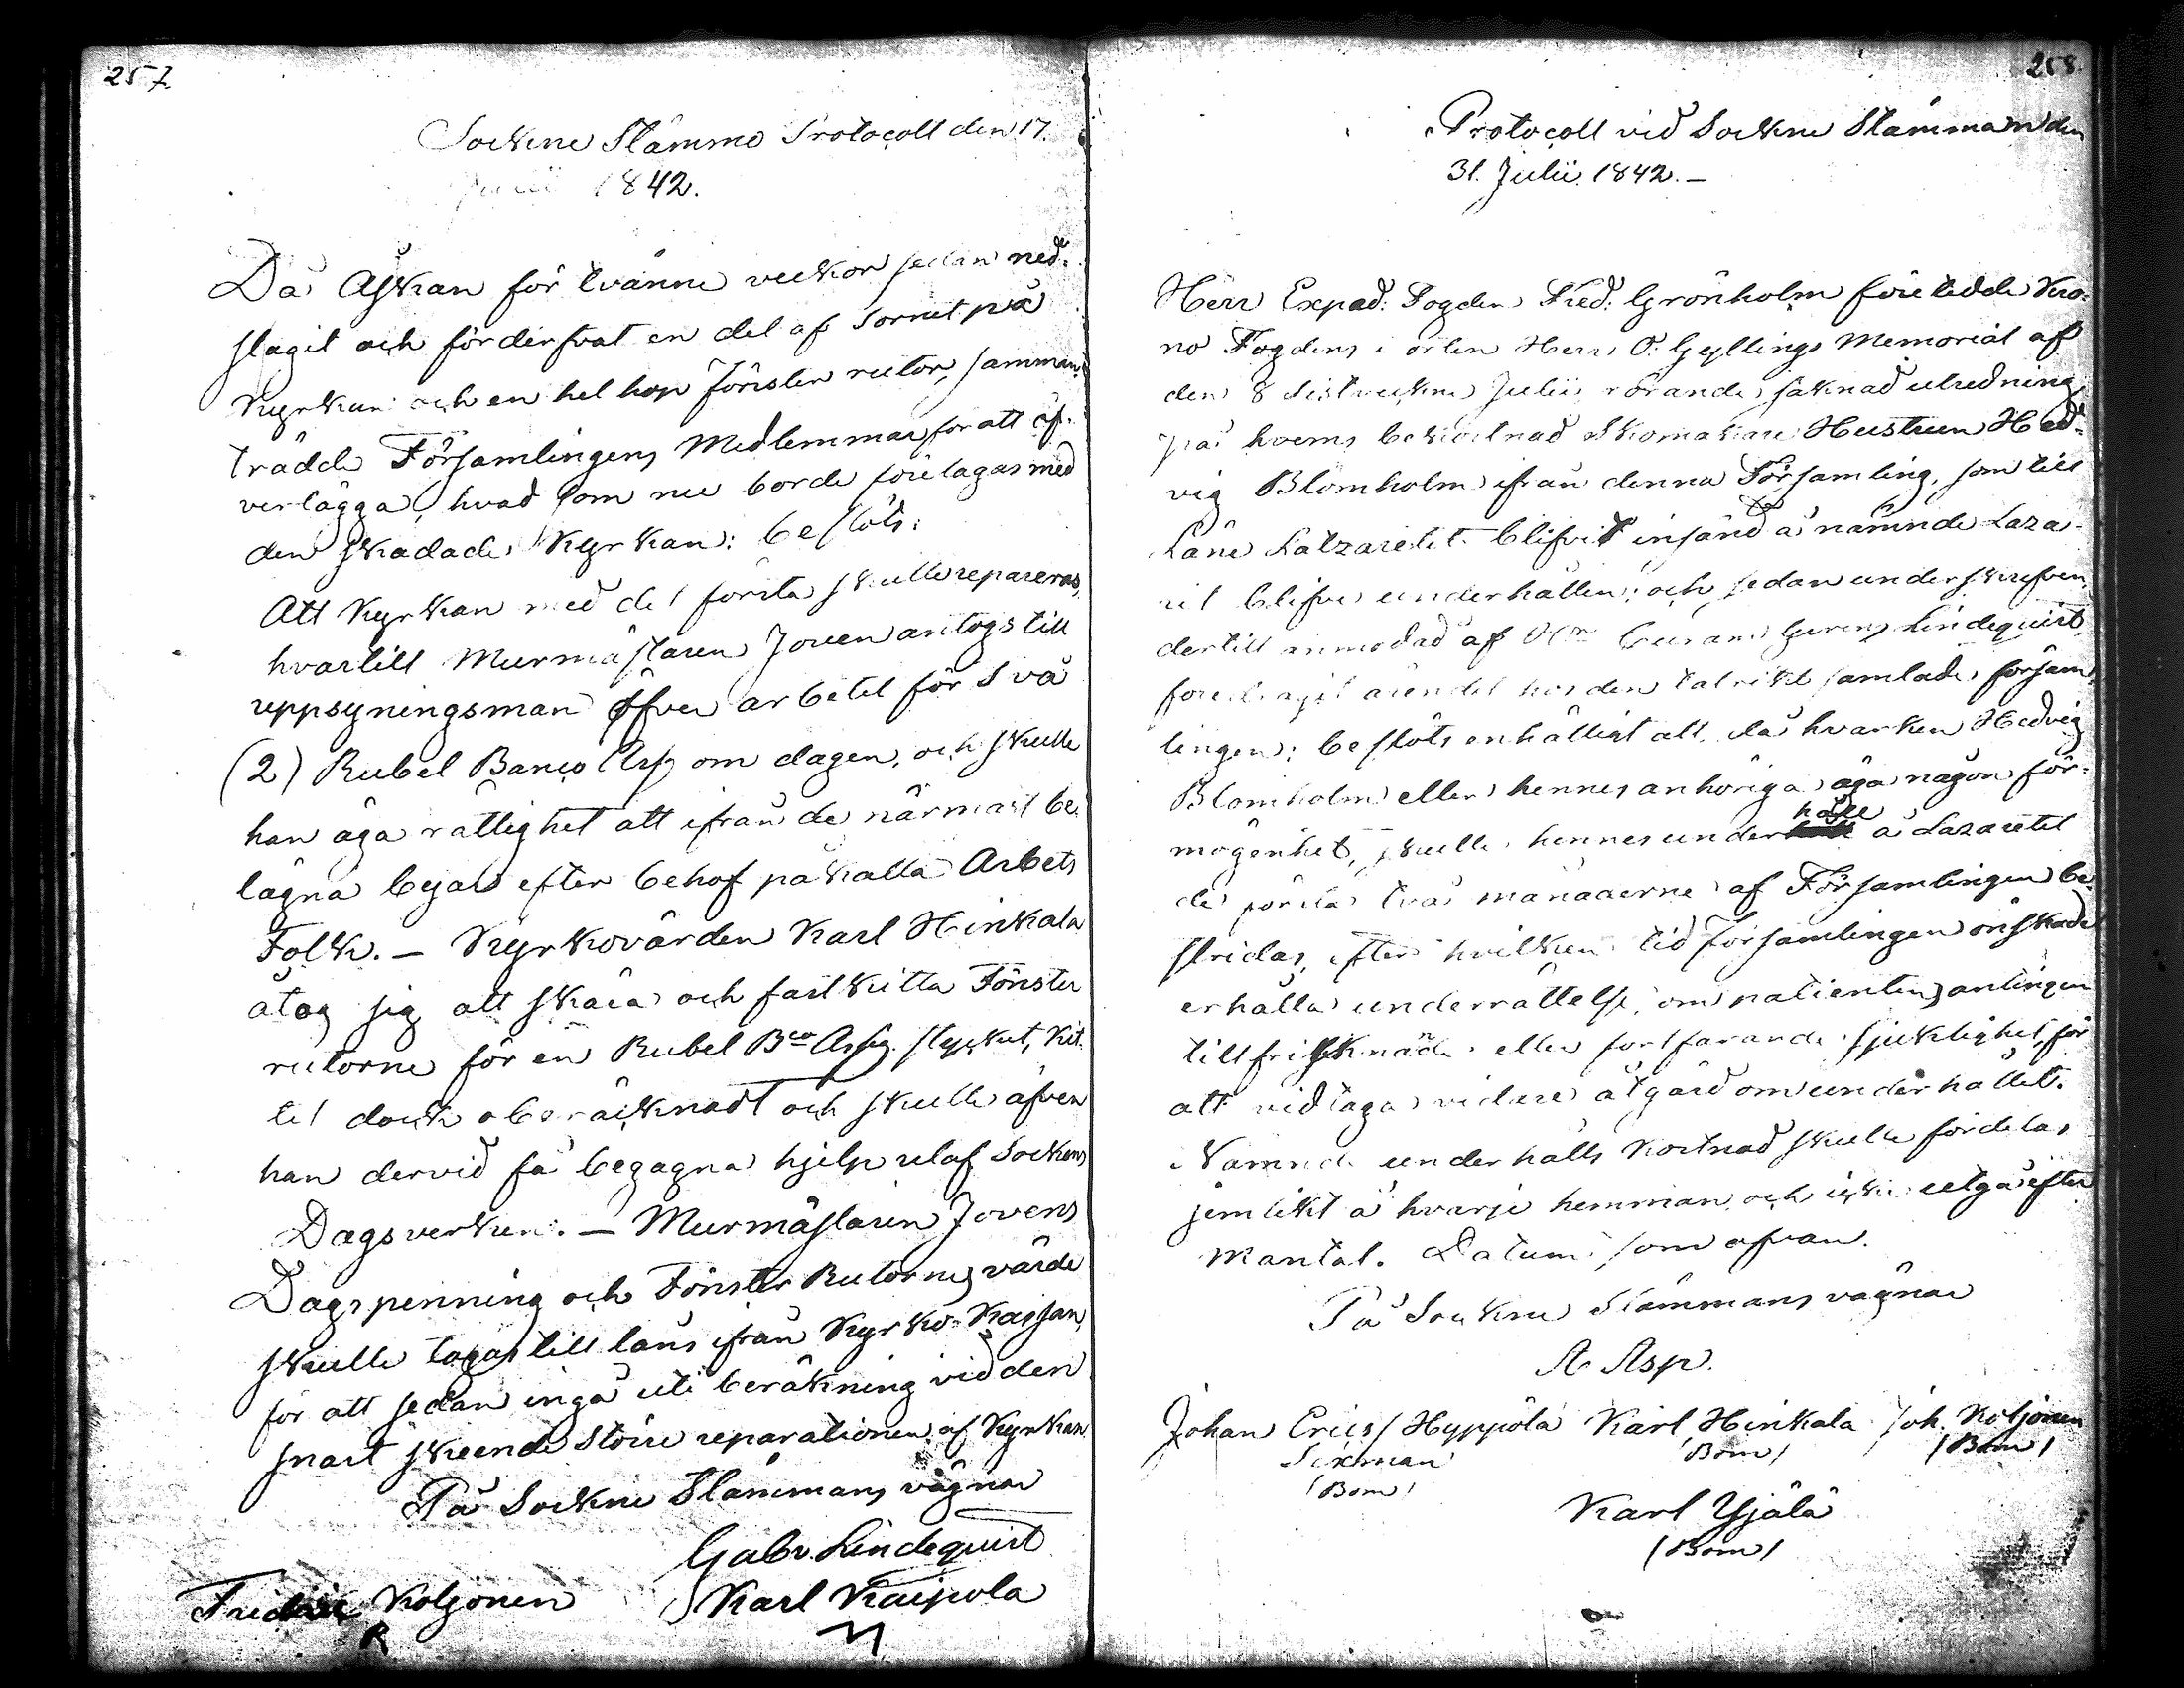 257.
Sockne Stämmo Protocoll den 17.
Julii 1842.
Då Åskan för tvänne veckor sedan ned-
slagit och förderfvat en del af tornet på
Kyrkan och en hel hop Fönster rutor, samman-
trädde Församlingens Medlemmar för att öf-
verlägga, hvad som nu borde företagas med
den skadade Kyrkan: beslöts:
Att Kyrkan med det första skulle repareras,
hvartill Murmästaren Joven antogs till
uppsyningsman öfver arbetet för två
(2) Rubel Banco Ass. om dagen, och skulle
han äga rättighet att ifrån de närmast be-
lägna byar efter behof påkalla Arbets
Folk. – Kyrkovärden Karl Hinkala
åtog sig att skära och fastkitta Fönster
rutorne för en Rubel Bco Assig. stycket, Kit-
tet dock oberäcknadt och skulle äfven
han dervid få begagna hjelp utaf Sockens
Dagsverken. – Murmästaren Jovens
Dagspenning och Fönster Rutornes värde
skulle tagas till låns ifrån Kyrko-Kassan,
för att sedan ingå uti beräkning vid den
snart skeende större reparationen af Kyrkan.
På Sockne Stämmans vägnar
Gabr. Lindequist
Fredrik Koljonen Karl Kaipola
258.
Protocoll vid Sockne Stämman den
31. Julii 1842. –
Herr Exped: Fogden Fred: Grönholm företedde Kro-
no Fogdens i orten Herr O. Gyllings Memorial af
den 8 sistveckne Julii rörande saknad utredning
på hvems bekostnad Skomakare Hustrun Hed-
vig Blomholm ifrån denna Församling, som till
Läne Latzarettet blifvit insänd å nämnde Laza-
ret blifve underhållen; och sedan underskrefven
dertill anmodad af Hr Curam Gerens Lindequist
föredragit ärendet hos den talrikt samlade försam-
lingen; beslöts enhälligt att, då hvarken Hedvig
Blomholm eller hennes anhöriga äga någon för-
mögenhet, skulle hennes underhåll å Lazarettet
de första två månaderne af Församlingen be-
stridas, efter hvilken tid Församlingen önskade
erhålla underrättelse, om patientens antingen
tillfrisknade eller fortfarande sjuklighet, för
att vidtaga vidare åtgärd om underhållet.
Nämnde underhålls kostnad skulle fördelas
jemlikt å hvarje hemman och icke utgå efter
Mantal. Datum som ofvan.
På Sockne Stämmans vägnar
A Asp.
Johan Erics/ Hyppölä Karl Hinkala Joh. Koljonen
Sexman /Bom/ /Bom/
/Bom/
Karl Yjälä
/Bom/